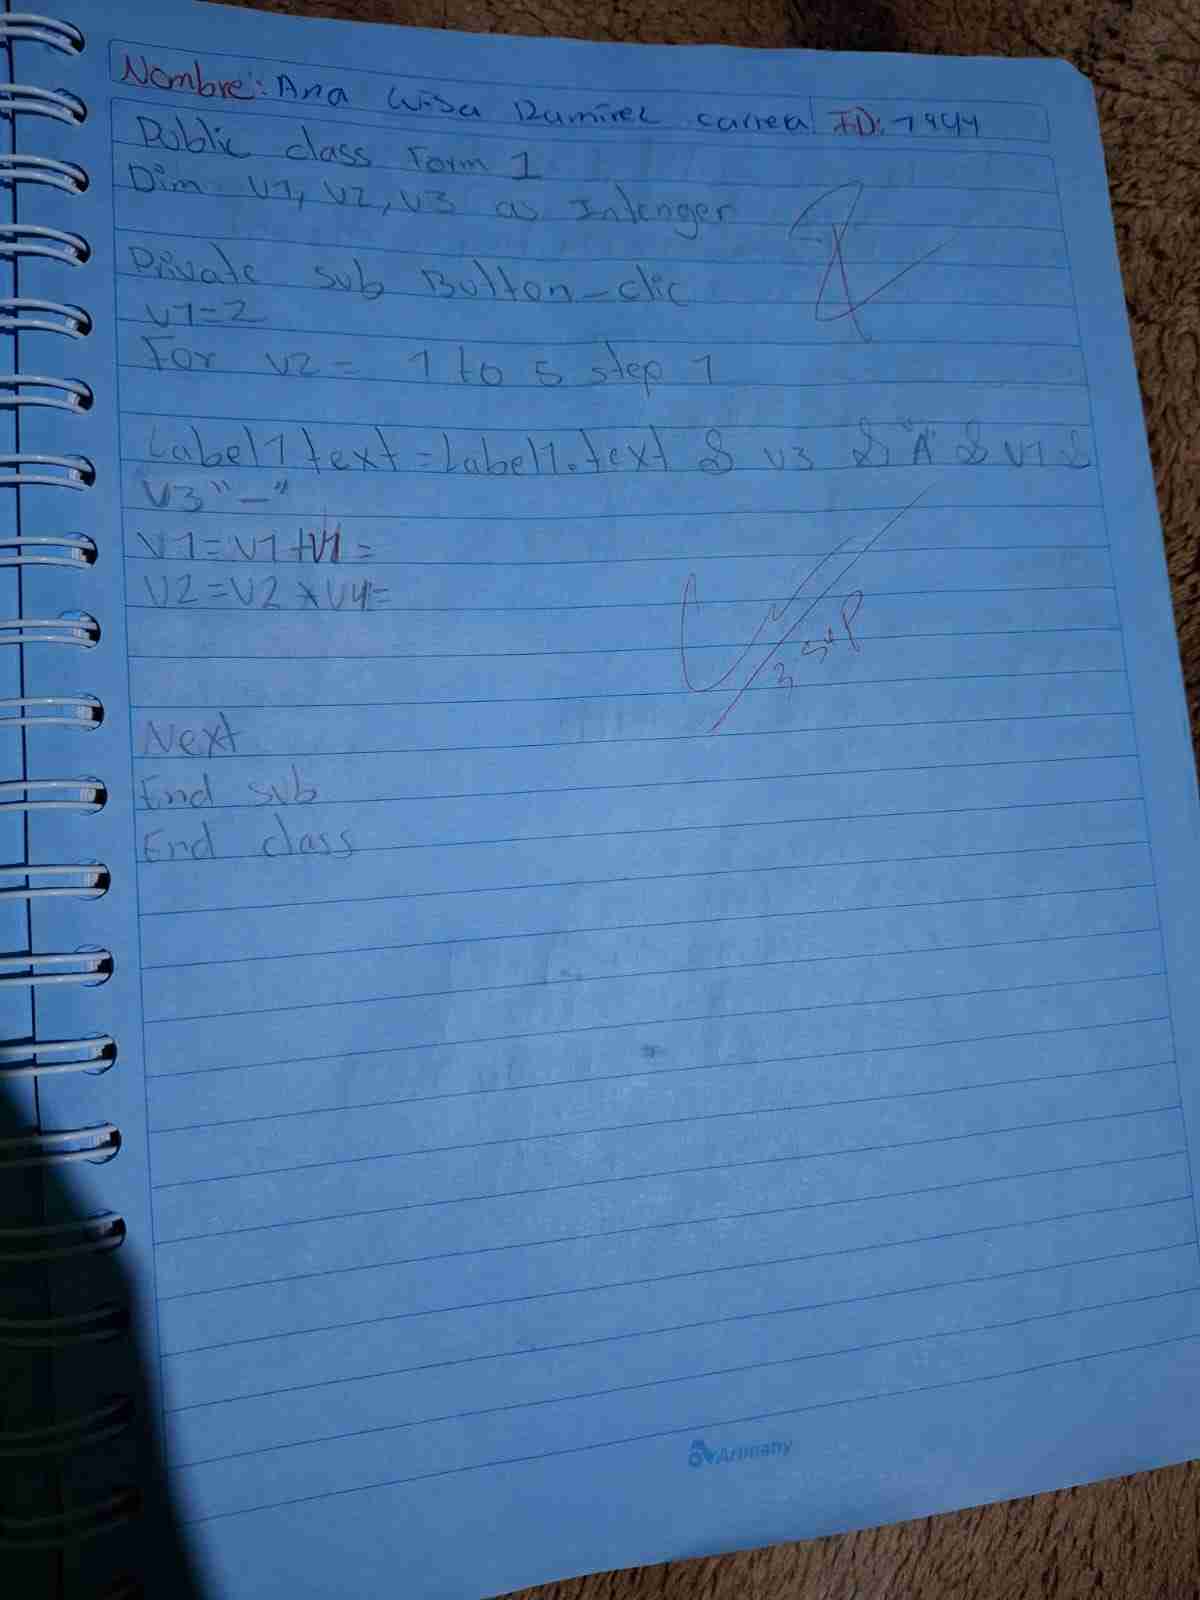 Nombre: Ana Luisa Ramirez Carrea ID: 7944
Public class Form 1
Dim V1, V2, V3 as Intenger
Private sub Button-clic
V1=2
For V2 = 1 to 5 step 1
Label1 text = Label1.text & V3 & "A" & V1 &
V3 "-"
V1=V1+V1=
V2=V2*V4=
Next
End sub
End class
Arimany